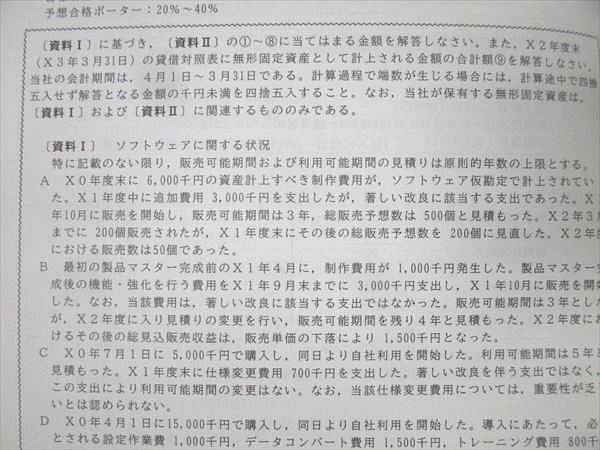 予想合格ボーター：20％～40％
〔資料Ⅰ〕に基づき，〔資料Ⅱ〕の①～⑧に当てはまる金額を解答しなさい。また，Ｘ２年度末
（Ｘ３年３月31日）の貸借対照表に無形固定資産として計上される金額の合計額⑨を解答しなさい。
当社の会計期間は，４月１日～３月31日である。計算過程で端数が生じる場合には，計算途中で四捨
五入せず解答となる金額の千円未満を四捨五入すること。なお，当社が保有する無形固定資産は，
〔資料Ⅰ〕および〔資料Ⅱ〕に関連するもののみである。
〔資料Ⅰ〕　ソフトウェアに関する状況
特に記載のない限り，販売可能期間および利用可能期間の見積りは原則的年数の上限とする。
Ａ　Ｘ０年度末に 6,000千円の資産計上すべき制作費用が，ソフトウェア仮勘定で計上されてい
た。Ｘ１年度中に追加費用 3,000千円を支出したが，著しい改良に該当する支出であった。Ｘ
年10月に販売を開始し，販売可能期間は３年，総販売予想数は 500個と見積もった。Ｘ２年３月
までに 200個販売されたが，Ｘ１年度末にその後の総販売予想数を 200個に見直した。Ｘ２年
における販売数は50個であった。
Ｂ　最初の製品マスター完成前のＸ１年４月に，制作費用が 1,000千円発生した。製品マスター完
成後の機能・強化を行う費用をＸ１年９月末までに 3,000千円支出し，Ｘ１年10月に販売を開始
した。なお，当該費用は，著しい改良に該当する支出ではなかった。販売可能期間は３年とし
が，Ｘ２年度に入り見積りの変更を行い，販売可能期間を残り４年と見積もった。Ｘ２年度にお
けるその後の総見込販売収益は，販売単価の下落により 1,500千円となった。
Ｃ　Ｘ０年７月１日に 5,000千円で購入し，同日より自社利用を開始した。利用可能期間は５年と
見積もった。Ｘ１年度末に仕様変更費用 700千円を支出した。著しい改良を伴う支出ではなく，
この支出により利用可能期間の変更はない。なお，当該仕様変更費用については，重要性が乏
いとは認められない。
Ｄ　Ｘ０年４月１日に15,000千円で購入し，同日より自社利用を開始した。導入にあたって，必
とされる設定作業費 1,000千円，データコンバート費用 1,500千円，トレーニング費用 800千